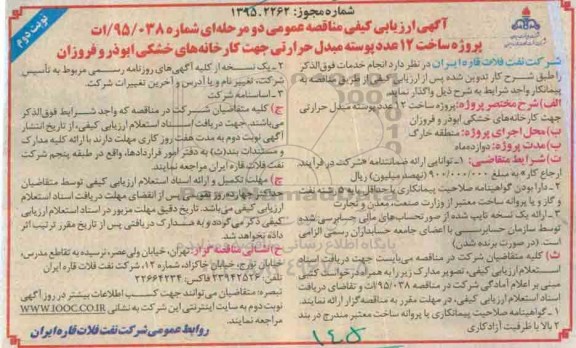 شماره مجوز: ۱۳۹۵.۲۲۶۲
نوبت دوم
آگهی ارزیابی کیفی مناقصه عمومی دو مرحله‌ای شماره ۹۵/۰۳۸/ات
پروژه ساخت ۱۲ عدد پوسته مبدل حرارتی جهت کارخانه‌های خشکی ابوذر و فروزان
شرکت نفت فلات قاره ایران در نظر دارد انجام خدمات فوق‌الذکر
را طبق شرح کار تدوین شده پس از ارزیابی کیفی از طریق مناقصه به
پیمانکار واجد شرایط به شرح ذیل واگذار نماید.
الف) شرح مختصر پروژه: پروژه ساخت ۱۲ عدد پوسته مبدل حرارتی
جهت کارخانه‌های خشکی ابوذر و فروزان
ب) محل اجرای پروژه: منطقه خارک
پ) مدت پروژه: دوازده‌ماه
ت) شرایط متقاضی: ۱- توانایی ارائه ضمانتنامه «شرکت در فرآیند
ارجاع کار» به مبلغ ۹۰۰/۰۰۰/۰۰۰ (نهصد میلیون) ریال
۲- دارا بودن گواهینامه صلاحیت پیمانکاری با حداقل پایه ۵ رشته نفت
و گاز و یا پروانه ساخت معتبر از وزارت صنعت، معدن و تجارت
۳- ارائه یک نسخه تایپ شده از صورتحساب‌های مالی حسابرسی شده
توسط سازمان حسابرسی یا اعضای جامعه حسابداران رسمی الزامی
است (در صورت برنده شدن)
ث) کلیه متقاضیان شرکت در مناقصه می‌بایست جهت دریافت اسناد
استعلام ارزیابی کیفی، تصویر مدارک زیر را به همراه درخواست کتبی
مبنی بر اعلام آمادگی شرکت در مناقصه ۹۵/۰۳۸/ات و تقاضای دریافت
اسناد استعلام ارزیابی کیفی، در مهلت مقرر به مناقصه‌گزار ارائه نمایند.
۱- گواهینامه صلاحیت پیمانکاری یا پروانه ساخت معتبر مندرج در بند
۲ بالا با ظرفیت آزاد کاری
۲- یک نسخه از کلیه آگهی‌های روزنامه رسمی مربوط به تأسیس
شرکت، تغییر نام و یا آدرس و آخرین تغییرات شرکت.
۳- اساسنامه شرکت
ج) کلیه متقاضیان شرکت در مناقصه که واجد شرایط فوق‌الذکر
می‌باشند، جهت دریافت اسناد استعلام ارزیابی کیفی، از تاریخ انتشار
آگهی نوبت دوم به مدت هفت روز کاری مهلت دارند با ارائه کلیه مدارک
و مستندات بند (ث) به دفتر امور قراردادها، واقع در طبقه پنجم شرکت
نفت فلات قاره ایران مراجعه نمایند.
چ) مهلت تکمیل و ارائه اسناد استعلام ارزیابی کیفی توسط متقاضیان
حداکثر چهارده روز تقویمی پس از انقضای مهلت دریافت اسناد استعلام
ارزیابی کیفی می‌باشد. تاریخ دقیق مهلت مزبور در اسناد استعلام ارزیابی
کیفی ذکر می‌گردد و به مدارک دریافتی پس از تاریخ مقرر ترتیب اثر
داده نخواهد شد.
ح) نشانی مناقصه گزار: تهران، خیابان ولی‌عصر، نرسیده به تقاطع مدرس،
خیابان تورج، خیابان خاکزاد، شماره ۱۲، شرکت نفت فلات قاره ایران
تلفن: ۲۳۹۴۲۵۲۶ فاکس: ۲۲۶۶۴۲۳۴
تبصره: متقاضیان می‌توانند جهت کسب اطلاعات بیشتر در روز آگهی
نوبت دوم به سایت اینترنتی این شرکت به نشانی WWW.IOOC.CO.IR
مراجعه نمایند.
روابط عمومی شرکت نفت فلات قاره ایران
۱۴۵